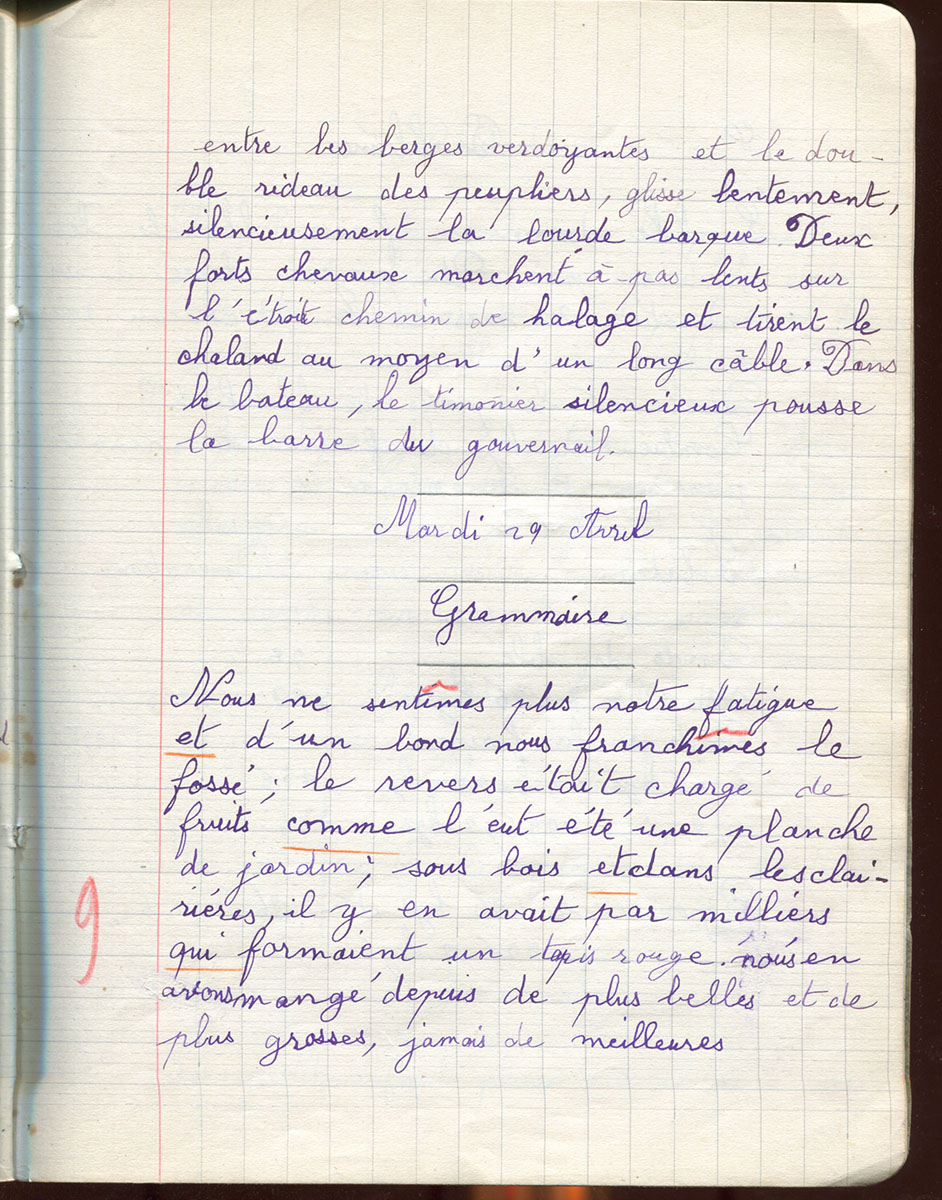 entre les berges verdoyantes et le dou-
ble rideau des peupliers, glisse lentement,
silencieusement la lourde barque. Deux
forts chevaux marchent à pas lents sur
l'étroit chemin de halage et tirent le
chaland au moyen d'un long câble. Dans
le bateau, le timonier silencieux pousse
la barre du gouvernail.
Mardi 29 Avril
Grammaire
Nous ne sentîmes plus notre fatigue
et d'un bond nous franchîmes le
fossé ; le revers était chargé de
fruits comme l'eut été une planche
de jardin ; sous bois et dans les clai-
riéres, il y en avait par milliers
9
qui formaient un tapis rouge. nous en
avons mangé depuis de plus belles et de
plus grosses, jamais de meilleures